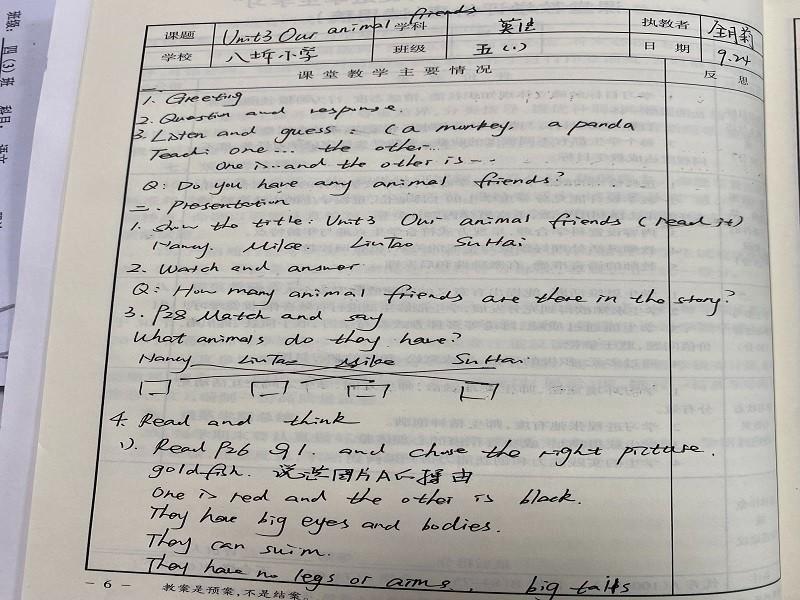 课题 Unit3 Our animal friends 学科 英语 执教者
学校 八圩小学 班级 五(1) 日期 9.24
课堂教学主要情况 反思
一.
1. Greeting
2. Question and response.
3. Listen and guess: (a monkey, a panda
Teach: one... the other...
One is... and the other is...
Q: Do you have any animal friends?
二. Presentation
1. Show the title: Unit3 Our animal friends (read it)
Nancy. Mike LiuTao SuHai
2. Watch and answer
Q: How many animal friends are there in the story?
3. P28 Match and say
What animals do they have?
Nancy LiuTao Mike SuHai
4. Read and think
1). Read P26 and chose the right picture.
goldfish. 说选图片A 理由
One is red and the other is black.
They have big eyes and bodies.
They can swim.
They have no legs or arms. big tails
- 6 - 教案是预案,不是结案。